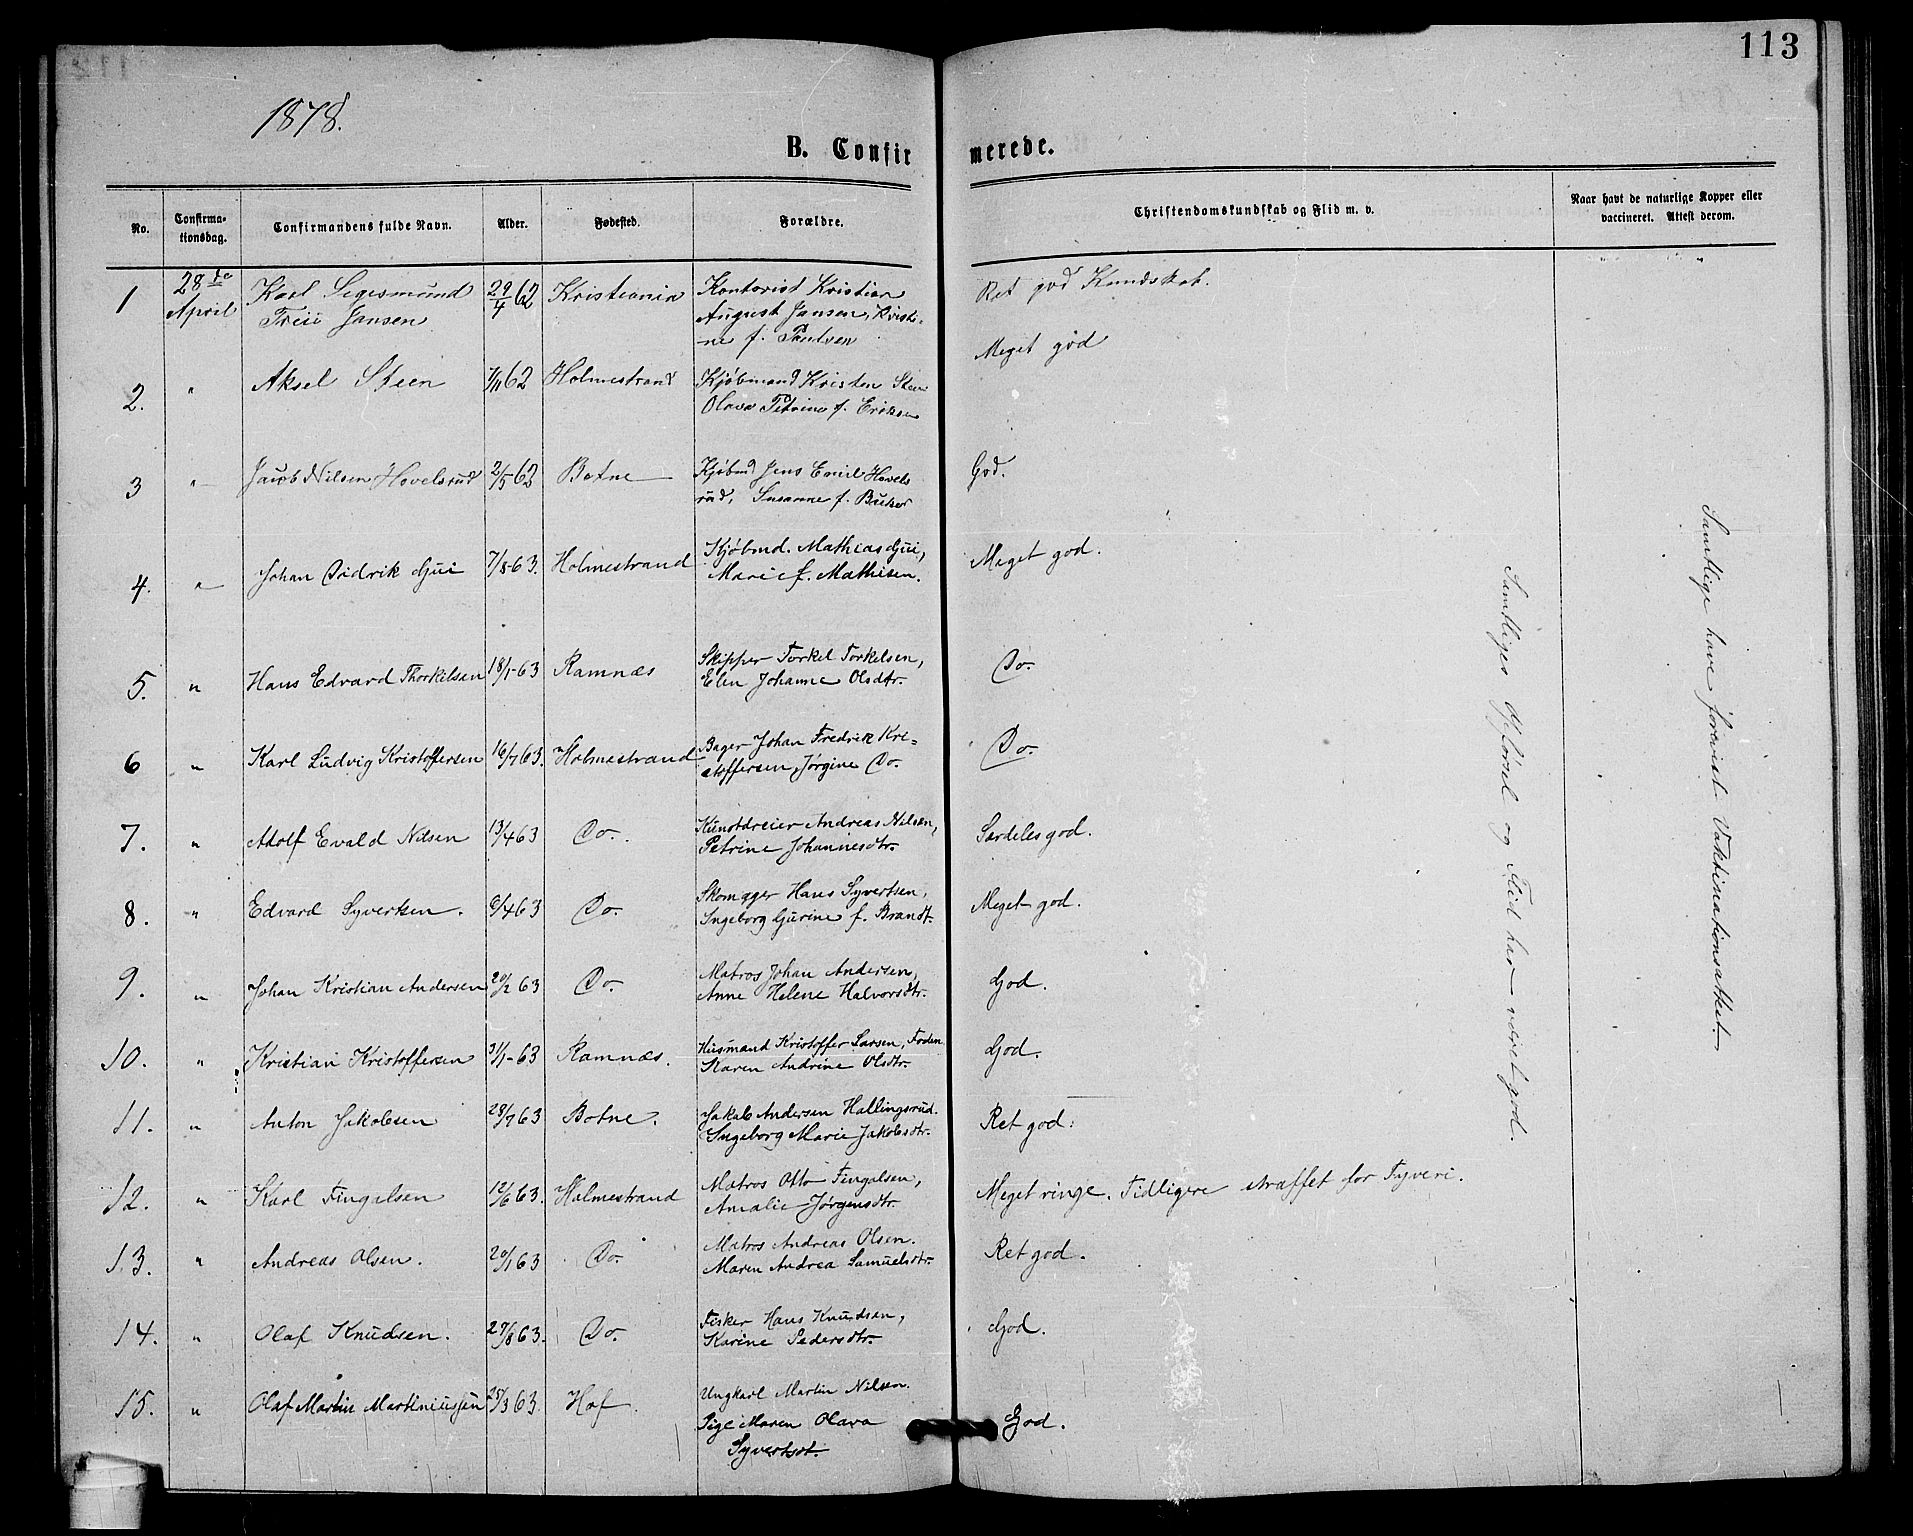 113
1878.
B. Confirmerede.
No.
Confirmationsdag.
Confirmandens fulde Navn.
Alder.
Fødested.
Forældre.
Christendomskundskab og Flid m. v.
Naar havt de naturlige Kopper eller vaccineret. Attest derom.
1 28de April Karl Segesmund 29/4 62 Kristiania Kontorist Kristian Ret god Kundskab.
Treii Jansen August Jansen, Kristi-
ne f. Paulsen
2. " Aksel Steen 7/11 62 Holmestrand Kjøbmand Kristen Steen Meget god
Olava Petrine f. Eriksen
3 " Jacob Nilsen Hovelsrud 2/5 62 Botne Kjøbmd Jens Emil Hovels God.
rud, Susanne f.
4. " Johan Didrik Gui 7/8-63. Holmestrand Kjøbmd. Mathias Gui, Meget god.
Marie f. Mathisen.
5. " Hans Edvard Thorkelsen 18/1-63 Ramnæs Skipper Torkel Torkelsen, Do.
Elen Johanne Olsdtr.
6 " Karl Ludvig Kristoffersen 16/7 63. Holmestrand Bager Johan Fredrik Kri= Do.
stoffersen, Jørgine Do.
7. " Adolf Evald Nilsen 13/4 63 Do. Kunstdreier Andreas Nilsen, Særdeles god.
Petrine Johannesdtr.
8. " Edvard Syvertsen. 6/4 63 Do. Skomager Hans Syvertsen, Meget god.
Ingeborg Gurine f. Brandt.
9. " Johan Kristian Andersen 20/2 63 Do. Matros Johan Andersen, God.
Anne Helene Halvorsdtr.
10. " Kristian Kristoffersen 31/1-63 Ramnæs. Husmand Kristoffer Larsen, God.
Karen Andrine Olsdtr.
11. " Anton Jakobsen 28/7 63 Botne. Jakob Andersen Hallingsrud. Ret god.
Ingeborg Marie Jakobsdtr.
12. " Karl Fingalsen 12/6 63. Holmestrand Matros Otto Fingalsen, Meget ringe. Tidligere straffet for Tyveri.
Amalie Jørgensdtr.
13. " Andreas Olsen. 20/1 63 Do. Matros Andreas Olsen. Ret god.
Maren Andrea Samuelsdtr.
14. " Olaf Knudsen. 27/8 63. Do. Fisker Hans Knudsen, God.
Karine Pedersdtr.
15. " Olaf Martin Martiniussen 25/3 63. Hof Ungkarl Martin Nilsen. God.
Pige Maren Olava
Syvertsdt.
Samtliges Opførsel og Flid har været god.
Samtlige have forevist Vaktinationsattest.